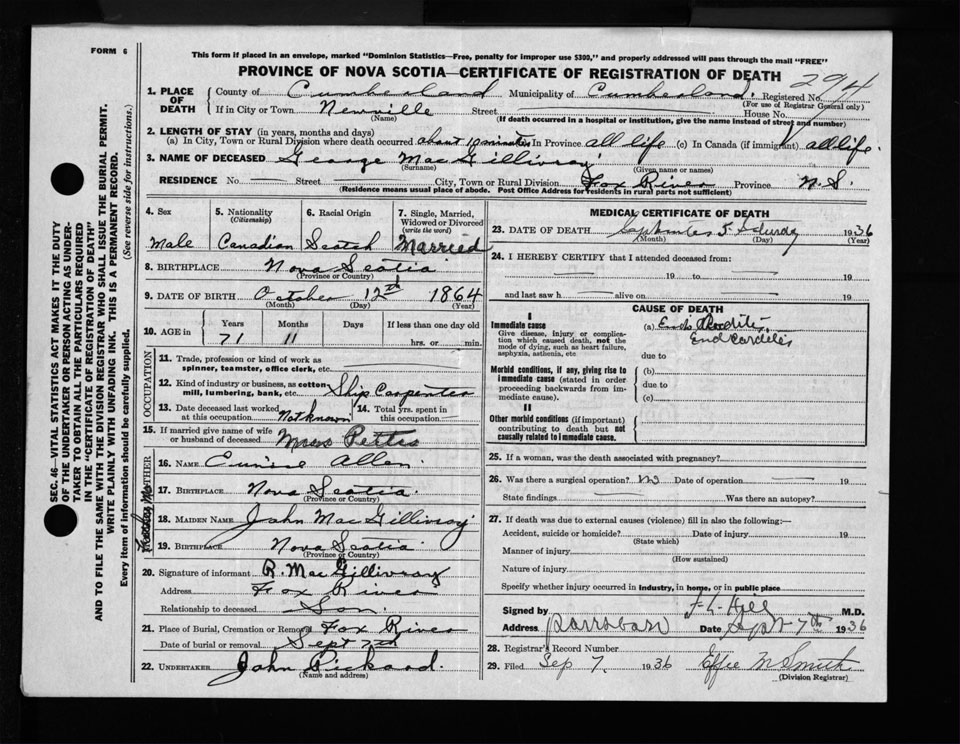 FORM 6
This form if placed in an envelope, marked "Dominion Statistics—Free, penalty for improper use $300," and properly addressed will pass through the mail "FREE"
PROVINCE OF NOVA SCOTIA—CERTIFICATE OF REGISTRATION OF DEATH
294
1. PLACE OF DEATH County of Cumberland Municipality of Cumberland. Registered No.
(For use of Registrar General only)
If in City or Town Newville Street House No.
(Name) (If death occurred in a hospital or institution, give the name instead of street and number)
2. LENGTH OF STAY (in years, months and days)
(a) In City, Town or Rural Division where death occurred about 10 minutes In Province all life (c) In Canada (if immigrant) all life.
3. NAME OF DECEASED George MacGillivray
(Surname) (Given name or names)
RESIDENCE No. Street City, Town or Rural Division Fox River Province N.S.
(Residence means usual place of abode. Post Office Address for residents in rural parts not sufficient)
4. Sex 5. Nationality (Citizenship) 6. Racial Origin 7. Single, Married, Widowed or Divorced (write the word)
Male Canadian Scotch Married
8. BIRTHPLACE Nova Scotia
(Province or Country)
9. DATE OF BIRTH October 12th 1864
(Month) (Day) (Year)
10. AGE in Years Months Days If less than one day old
71 11 hrs. or min.
OCCUPATION
11. Trade, profession or kind of work as spinner, teamster, office clerk, etc.
12. Kind of industry or business, as cotton mill, lumbering, bank, etc. Ship Carpenter
13. Date deceased last worked at this occupation Not known 14. Total yrs. spent in this occupation
15. If married give name of wife or husband of deceased Pettis
MOTHER
16. NAME Eunice Allen
17. BIRTHPLACE Nova Scotia
(Province or Country)
18. MAIDEN NAME John MacGillivray
19. BIRTHPLACE Nova Scotia
(Province or Country)
20. Signature of informant R. MacGillivray
Address Fox River
Relationship to deceased Son.
21. Place of Burial, Cremation or Removal Fox River
Date of burial or removal Sept 7th
22. UNDERTAKER John Rickard.
(Name and address)
MEDICAL CERTIFICATE OF DEATH
23. DATE OF DEATH September 5 Saturday 1936
(Month) (Day) (Year)
24. I HEREBY CERTIFY that I attended deceased from:
19 to 19
and last saw h alive on 19
CAUSE OF DEATH
I
Immediate cause (a)
Give disease, injury or complication which caused death, not the mode of dying, such as heart failure, asphyxia, asthenia, etc
Endcarditis
due to
Morbid conditions, if any, giving rise to immediate cause (stated in order proceeding backwards from immediate cause).
(b)
due to
(c)
II
Other morbid conditions (if important) contributing to death but not causally related to immediate cause.
25. If a woman, was the death associated with pregnancy?
26. Was there a surgical operation? no Date of operation 19
State findings Was there an autopsy?
27. If death was due to external causes (violence) fill in also the following:—
Accident, suicide or homicide? Date of injury 19
(State which)
Manner of injury
(How sustained)
Nature of injury
Specify whether injury occurred in industry, in home, or in public place
Signed by F. L. Hill M.D.
Address Parrsboro Date Sept 7th 1936
28. Registrar's Record Number
29. Filed Sep 7 1936 Effie M Smith
(Division Registrar)
SEC. 46—VITAL STATISTICS ACT MAKES IT THE DUTY
OF THE UNDERTAKER OR PERSON ACTING AS UNDERTAKER TO OBTAIN ALL THE PARTICULARS REQUIRED
IN THE "CERTIFICATE OF REGISTRATION OF DEATH"
AND TO FILE THE SAME WITH THE DIVISION REGISTRAR WHO SHALL ISSUE THE BURIAL PERMIT.
(See reverse side for instructions.)
WRITE PLAINLY WITH UNFADING INK. THIS IS A PERMANENT RECORD.
Every item of information should be carefully supplied.